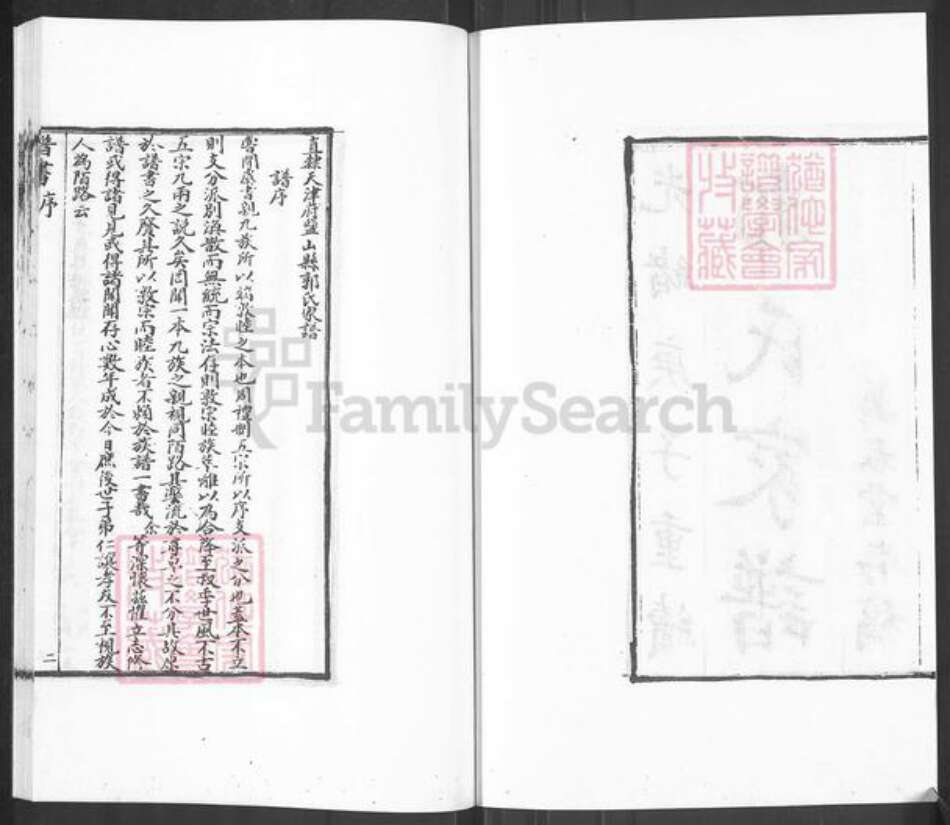 直隸天津府鹽山縣郭氏家譜
譜序
嘗聞虞書親九族所以篤敦睦之本也周禮劃五宗所以序支派之分也蓋本不立
則支分派別渙散而無統而宗法存則敦宗睦族萃離以為合降至叔季世風不古
五宗九兩之說久矣罔聞一本九族之親視同陌路其弊流於尊卑之不分其故皆
於譜書之久廢其所以敦宗而睦族者不賴於族譜一書哉余等深懷茲懼立志修
譜或得諸見見或得諸聞聞存心數年成於今日庶後世子弟仁讓孝友不至視族
人為陌路云
譜書序
二
FamilySearch
收藏
譜學會